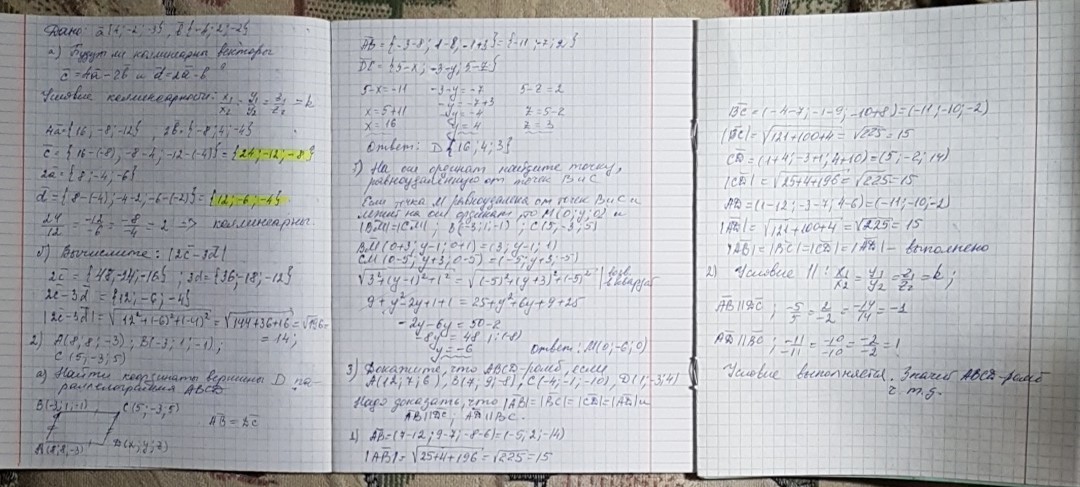 Дано: a̅{4;-2;-3}, b̅{-4;2;-2}
а) Будут ли коллинеарны векторы
c̅=4a̅-2b̅ и d̅=2a̅-b̅?
Условие коллинеарности: x₁/x₂=y₁/y₂=z₁/z₂=k
4a̅={16;-8;-12}, 2b̅={-8;4;-4}
c̅={16-(-8);-8-4;-12-(-4)}={24;-12;-8}
2a̅={8;-4;-6}
d̅={8-(-4);-4-2;-6-(-2)}={12;-6;-4}
24/12=-12/-6=-8/-4=2 => коллинеарны.
б) Вычислите: |2c̅-3d̅|
2c̅={48;-24;-16}; 3d̅={36;-18;-12}
2c̅-3d̅={12;-6;-4}
|2c-3d|=√12²+(-6)²+(-4)²=√144+36+16=√196=
=14;
2) A(8;8;-3); B(-3;1;-1);
C(5;-3;5)
а) Найти координаты вершины D па-
раллелограмма ABCD
B(-3;1;-1) C(5;-3;5)
A̅B̅=D̅C̅
A(8;8;-3) D(x;y;z)
A̅B̅={-3-8;1-8;-1+3}={-11;-7;2}
D̅C̅={5-x;-3-y;5-z}
5-x=-11 -3-y=-7 5-z=2
x=5+11 -y=-7+3 z=5-2
x=16 -y=-4 z=3
y=4
Ответ: D{16;4;3}
б) На оси ординат найдите точку,
равноудалённую от точек B и C
Если точка M равноудалена от точек B и C и
лежит на оси ординат, то M(0;y;0) и
|BM|=|CM|; B(-3;1;-1); C(5;-3;5)
BM(0+3;y-1;0+1)=(3;y-1;1)
CM(0-5;y+3;0-5)=(-5;y+3;-5)
√3²+(y-1)²+1²=√(-5)²+(y+3)²+(-5)² | возв. в квадрат
9+y²-2y+1+1=25+y²+6y+9+25
-2y-6y=50-2
-8y=48 |:(-8)
y=-6 Ответ: M(0;-6;0)
3) Докажите, что ABCD-ромб, если
A(12;7;6), B(7;9;-8), C(-4;-1;-10), D(1;-3;4)
Надо доказать, что |AB|=|BC|=|CD|=|AD| и
AB||DC; AD||BC.
1) A̅B̅=(7-12;9-7;-8-6)=(-5;2;-14)
|A̅B̅|=√25+4+196=√225=15
B̅C̅=(-4-7;-1-9;-10+8)=(-11;-10;-2)
|B̅C̅|=√121+100+4=√225=15
C̅D̅=(1+4;-3+1;4+10)=(5;-2;14)
|C̅D̅|=√25+4+196=√225=15
A̅D̅=(1-12;-3-7;4-6)=(-11;-10;-2)
|A̅D̅|=√121+100+4=√225=15
|AB|=|BC|=|CD|=|AD| – выполнено
2) Условие ||: x₁/x₂=y₁/y₂=z₁/z₂=k;
A̅B̅||D̅C̅; -5/5=2/-2=-14/14=-1
A̅D̅||B̅C̅; -11/-11=-10/-10=-2/-2=1
Условие выполняется. Значит ABCD-ромб
ч.т.д.